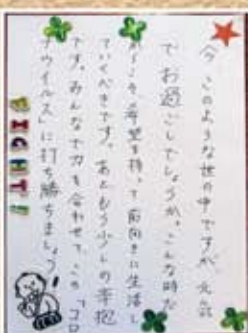 今 このような世の中ですが、元気
でお過ごしでしょうか。こんな時だ
からこそ、希望を持って前向きに生活し
ていくべきです。あともう少しの辛抱
です。みんなで力を合わせて、この「コロ
ナウイルス」に打ち勝ちましょう!
FIGHT!